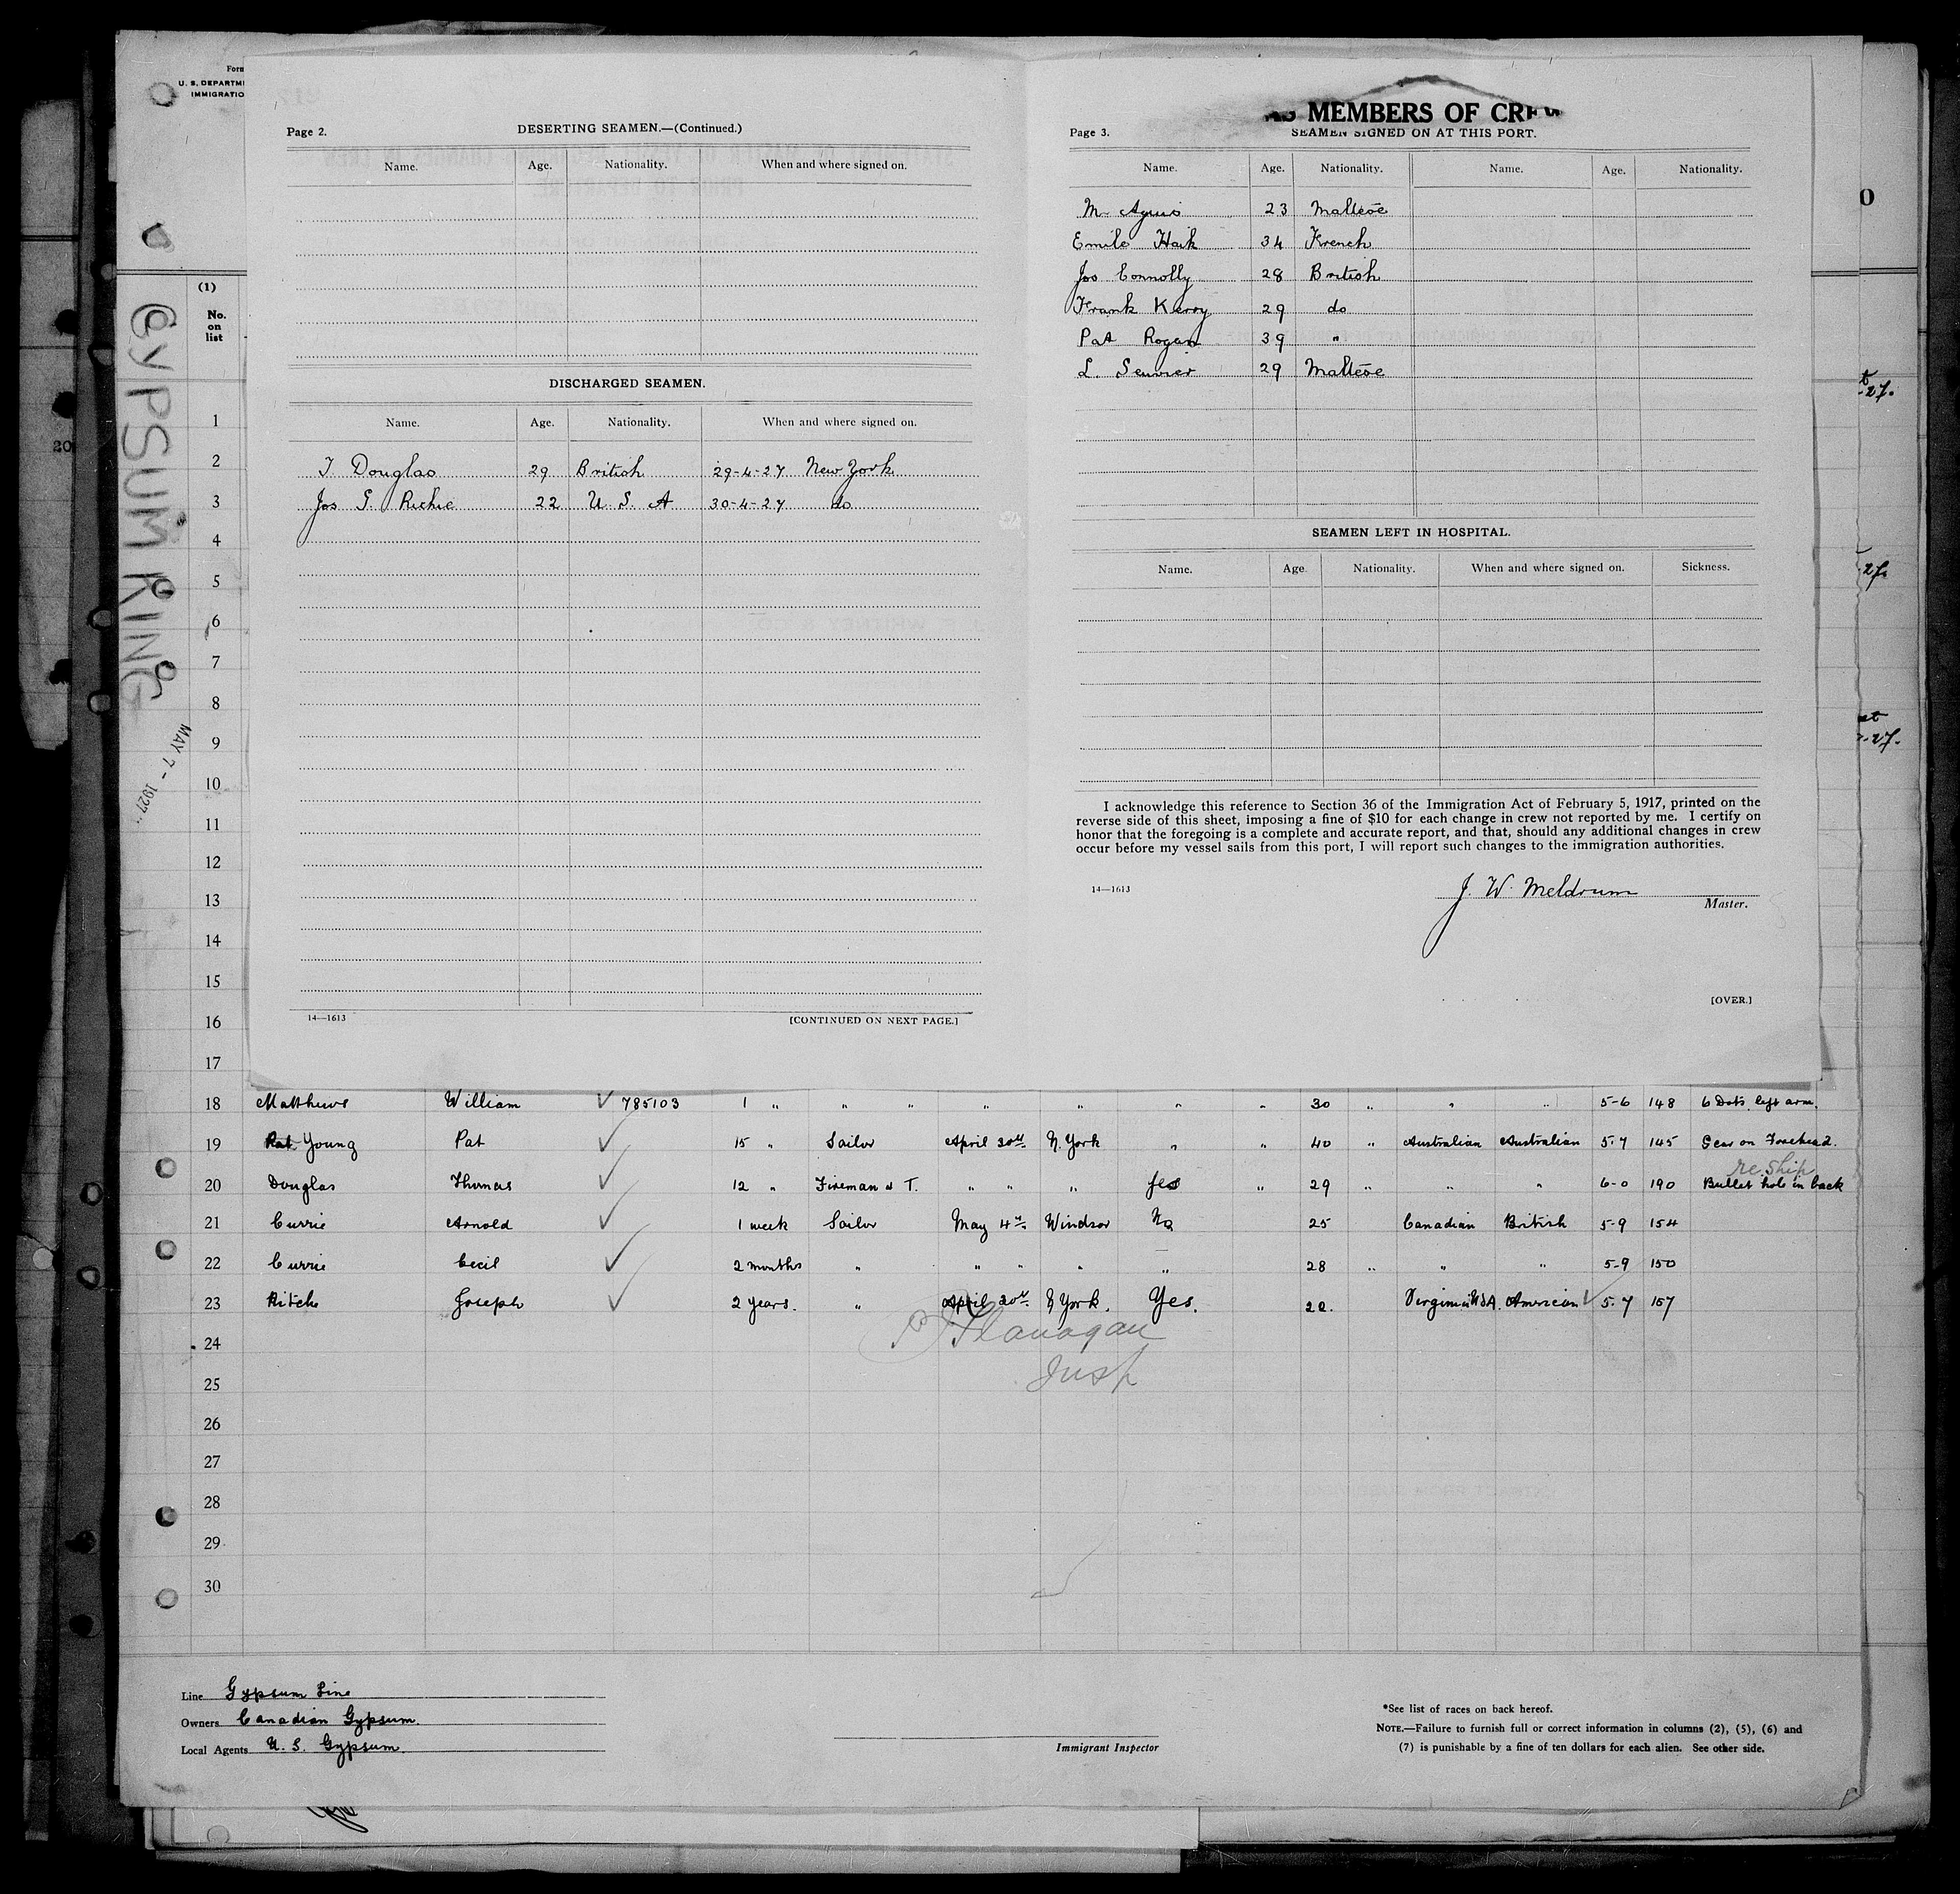 Form
U. S. DEPARTME
IMMIGRATIO
(1)
No.
on
list
GYPSUM RING
MAY 7 - 1927
Page 2.
DESERTING SEAMEN.—(Continued.)
Name. Age. Nationality. When and where signed on.
DISCHARGED SEAMEN.
Name. Age. Nationality. When and where signed on.
T. Douglas 29 British 29-4-27 New York
Jos G. Richie 22 U. S. A 30-4-27 do
14—1613 [CONTINUED ON NEXT PAGE.]
MEMBERS OF CREW
Page 3.
SEAMEN SIGNED ON AT THIS PORT.
Name. Age. Nationality. Name. Age. Nationality.
M. Agius 23 Maltese
Emile Haik 34 French
Jos Connolly 28 British
Frank Kerry 29 do
Pat Rogan 39 "
L. 29 Maltese
SEAMEN LEFT IN HOSPITAL.
Name. Age. Nationality. When and where signed on. Sickness.
I acknowledge this reference to Section 36 of the Immigration Act of February 5, 1917, printed on the
reverse side of this sheet, imposing a fine of $10 for each change in crew not reported by me. I certify on
honor that the foregoing is a complete and accurate report, and that, should any additional changes in crew
occur before my vessel sails from this port, I will report such changes to the immigration authorities.
14—1613
J. W. Meldrum
Master.
[OVER.]
1
2
3
4
5
6
7
8
9
10
11
12
13
14
15
16
17
18 Matthews William 785103 1 " " " " " " " 30 " " " 5-6 148 6 Dots left arm.
19 Young Pat 15 " Sailor April 30th N. York " " 40 " Australian Australian 5-7 145 Scar on Forehead.
re ship
20 Douglas Thomas 12 " Fireman & T. " " " Yes " 29 " " " 6-0 190 Bullet hole in back
21 Currie Arnold 1 week Sailor May 4th Windsor No 25 Canadian British 5-9 154
22 Currie Cecil 2 months " " " " " 28 " " " 5-9 150
23 Ritchie Joseph 2 years. " April 30th N York. Yes. 22. Virginia USA. American 5-7 157
Flanagan
Insp
24
25
26
27
28
29
30
Line Gypsum Line
Owners Canadian Gypsum.
Local Agents U. S. Gypsum.
Immigrant Inspector
*See list of races on back hereof.
NOTE.—Failure to furnish full or correct information in columns (2), (5), (6) and
(7) is punishable by a fine of ten dollars for each alien. See other side.